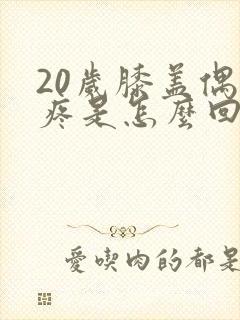 20歲膝盖偶
疼是怎麼回
愛喫肉的都是